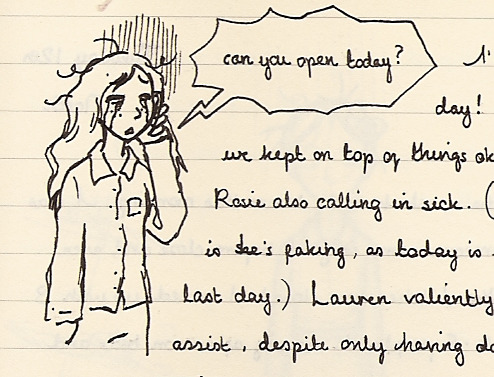 can you open today?
day!
we kept on top of things
Rosie also calling in sick. (
is she's faking, as today is
last day.) Lauren valiently
assist, despite only having